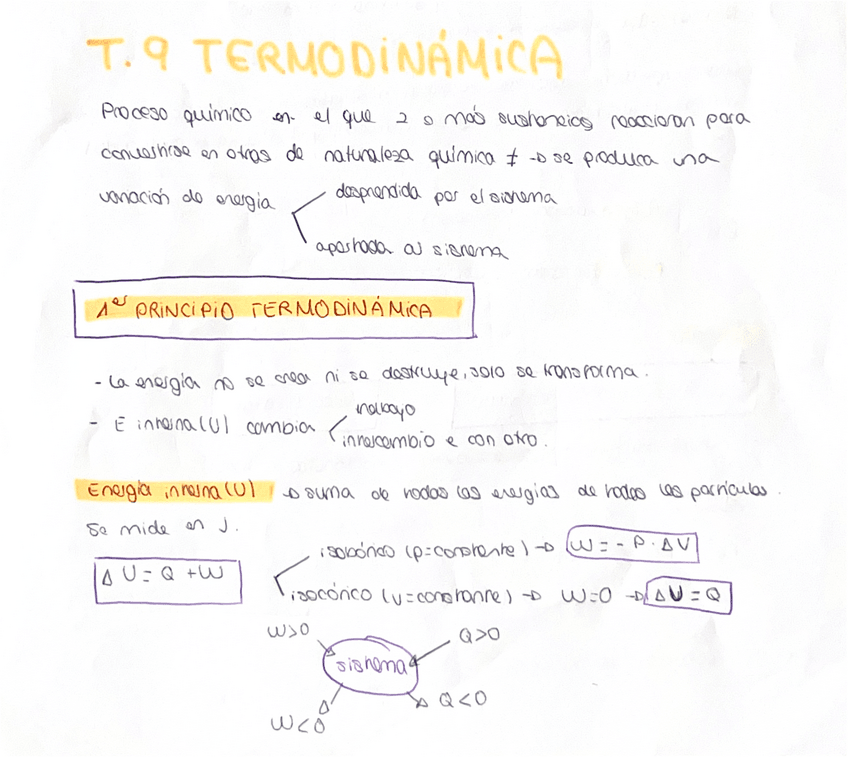 T.9 TERMODINÁMICA
Proceso químico en el que 2 o más sustancias reaccionan para
convertirse en otras de naturaleza química ≠ → se produce una
variación de energía
desprendida por el sistema
aportada al sistema
1er PRINCIPIO TERMODINÁMICA
- La energía no se crea ni se destruye, solo se transforma.
- E interna (U) cambia
trabajo
intercambio e con otro.
Energía interna (U) → suma de todas las energías de todas las partículas.
Se mide en J.
ΔU = Q + W
isobórico (p=constante) → W = - P · ΔV
isocórico (v=constante) → W=0 → ΔU = Q
W>0
Q>0
sistema
W<0
Q<0